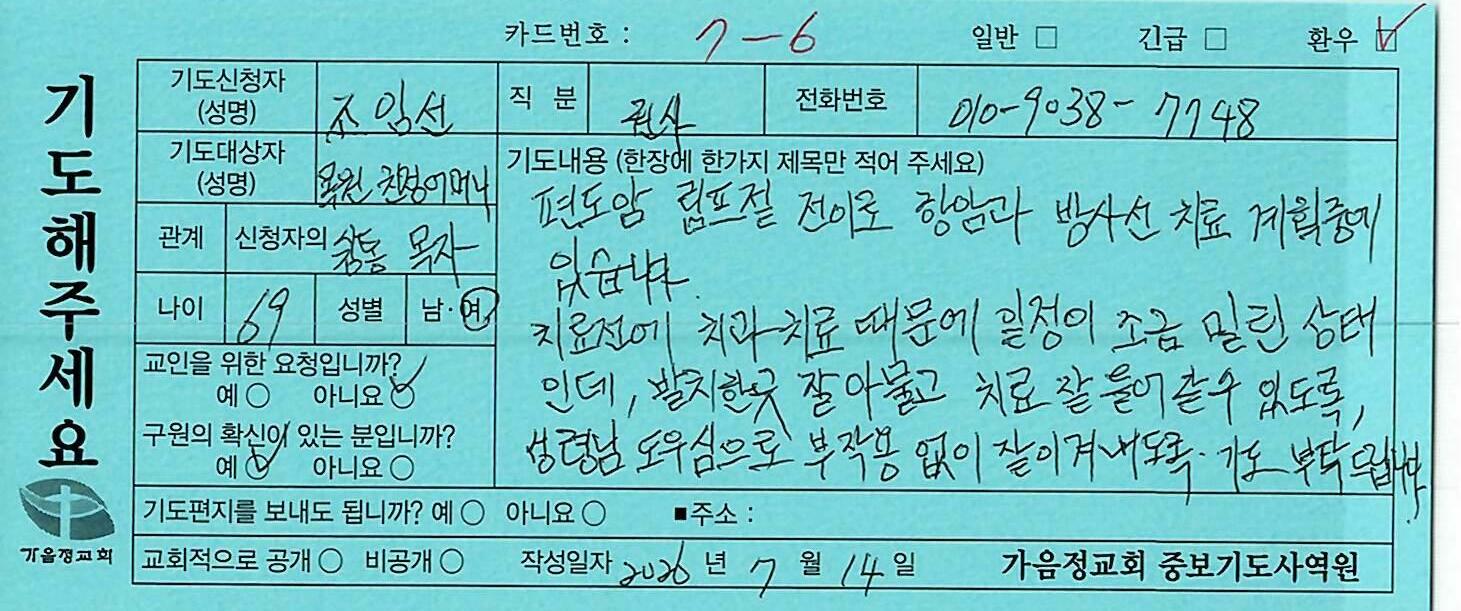 카드번호 : 7-6 일반 □ 긴급 □ 환우 ☑
기도해주세요
가음정교회
기도신청자 (성명) 조임선 직 분 권사 전화번호 010-9038-7748
기도대상자 (성명) 목원 친정어머니
관계 신청자의 목자
나이 69 성별 남·여
교인을 위한 요청입니까?
예 ○ 아니요 ○
구원의 확신이 있는 분입니까?
예 ○ 아니요 ○
기도내용 (한장에 한가지 제목만 적어 주세요)
편도암 림프절 전이로 항암과 방사선 치료 계획중에
있습니다.
치료전에 치과치료 때문에 일정이 조금 밀린 상태
인데, 발치한곳 잘 아물고 치료 잘 들어갈수 있도록,
성령님 도우심으로 부작용 없이 잘 이겨내도록. 기도 부탁 드립니다.
기도편지를 보내도 됩니까? 예 ○ 아니요 ○ ■주소 :
교회적으로 공개 ○ 비공개 ○ 작성일자 2026 년 7 월 14 일 가음정교회 중보기도사역원